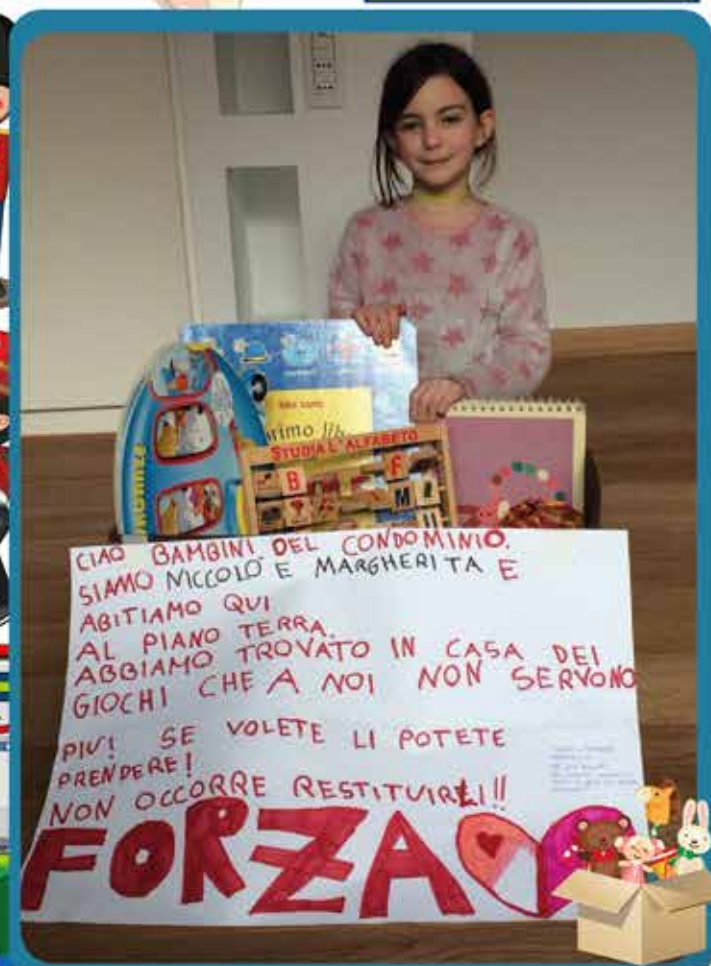 primo lib
STUDIA L'ALFABETO
B
F
M
CIAO BAMBINI DEL CONDOMINIO.
SIAMO NICCOLÒ E MARGHERITA E
ABITIAMO QUI
AL PIANO TERRA.
ABBIAMO TROVATO IN CASA DEI
GIOCHI CHE A NOI NON SERVONO
PIU! SE VOLETE LI POTETE
PRENDERE!
NON OCCORRE RESTITUIRLI!!
FORZA